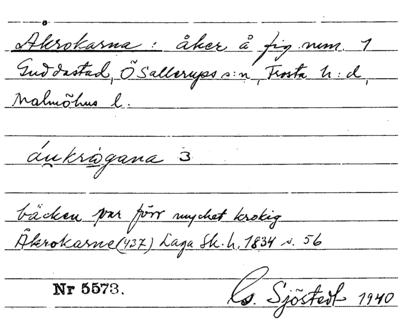 Åkrokarna: åker å fig. num. 1
Guddastad, Ö Sallerups s:n, Frosta h:d,
Malmöhus l.
áukrågana 3
bäcken var förr mycket krokig
Åkrokarne (437) Laga Sk. h. 1834 s. 56
Nr 5573.
Gs. Sjöstedt 1940